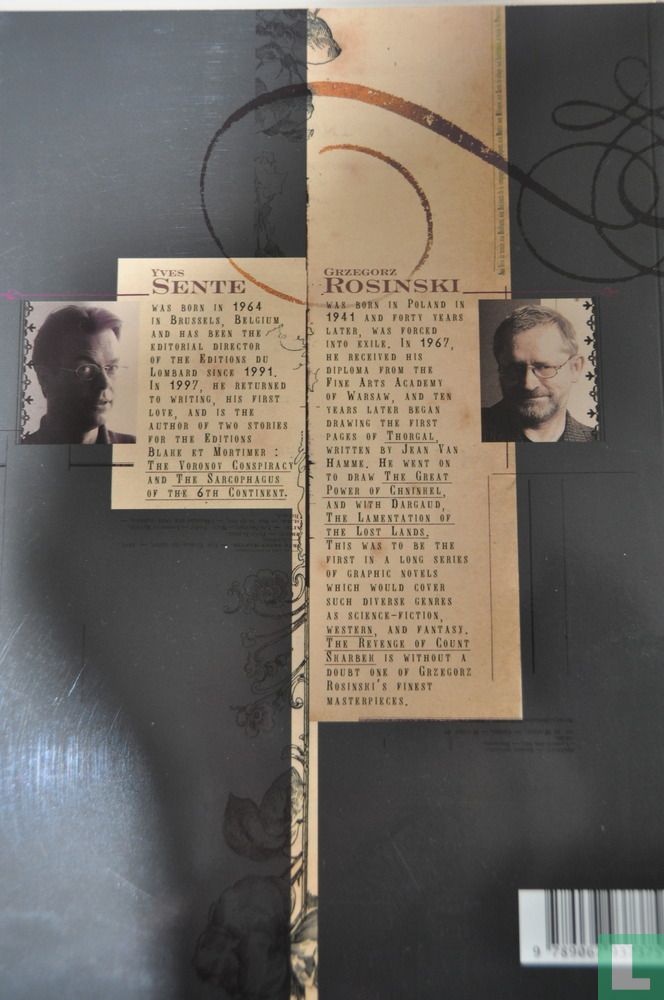 Yves
SENTE
WAS BORN IN 1964
IN BRUSSELS, BELGIUM,
AND HAS BEEN THE
EDITORIAL DIRECTOR
OF THE EDITIONS DU
LOMBARD SINCE 1991.
IN 1997, HE RETURNED
TO WRITING, HIS FIRST
LOVE, AND IS THE
AUTHOR OF TWO STORIES
FOR THE EDITIONS
BLAKE ET MORTIMER :
THE VORONOV CONSPIRACY
AND THE SARCOPHAGUS
OF THE 6TH CONTINENT.
GRZEGORZ
ROSINSKI
WAS BORN IN POLAND IN
1941 AND FORTY YEARS
LATER, WAS FORCED
INTO EXILE. IN 1967,
HE RECEIVED HIS
DIPLOMA FROM THE
FINE ARTS ACADEMY
OF WARSAW, AND TEN
YEARS LATER BEGAN
DRAWING THE FIRST
PAGES OF THORGAL,
WRITTEN BY JEAN VAN
HAMME. HE WENT ON
TO DRAW THE GREAT
POWER OF CHNINKEL,
AND WITH DARGAUD,
THE LAMENTATION OF
THE LOST LANDS.
THIS WAS TO BE THE
FIRST IN A LONG SERIES
OF GRAPHIC NOVELS
WHICH WOULD COVER
SUCH DIVERSE GENRES
AS SCIENCE-FICTION,
WESTERN, AND FANTASY.
THE REVENGE OF COUNT
SKARBEK IS WITHOUT A
DOUBT ONE OF GRZEGORZ
ROSINSKI'S FINEST
MASTERPIECES.
L